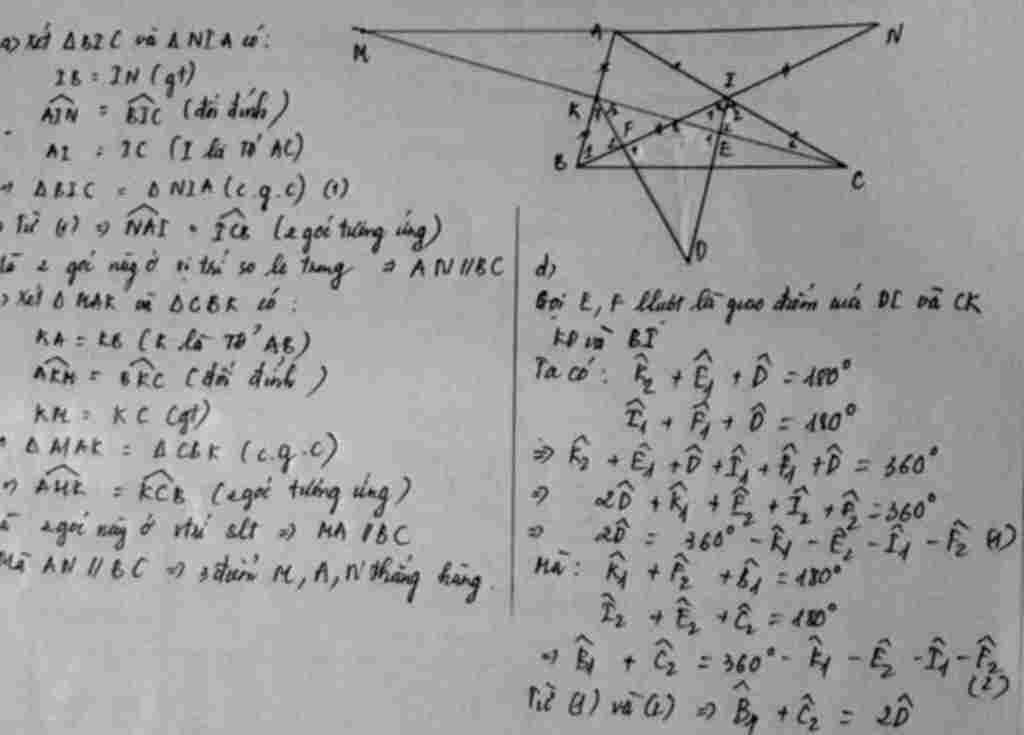 a) Xét ΔBIC và ΔNIA có:
IB = IN (gt)
∠AIN = ∠BIC (đối đỉnh)
AI = IC (I là TĐ AC)
⇒ ΔBIC = ΔNIA (c.g.c) (1)
Từ (1) ⇒ ∠NAI = ∠ICB (2 góc tương ứng)
2 góc này ở vị trí so le trong ⇒ AN // BC
Xét ΔMAK và ΔCBK có:
KA = KB (K là TĐ AB)
∠AKM = ∠BKC (đối đỉnh)
KM = KC (gt)
ΔMAK = ΔCBK (c.g.c)
⇒ ∠AMK = ∠KCB (2 góc tương ứng)
2 góc này ở vtrí slt ⇒ MA // BC
Mà AN // BC ⇒ 3 điểm M, A, N thẳng hàng.
M A N
K I
F
E
B C
D
d)
Gọi E, F là giao điểm của DI và CK
KD và BI
Ta có: K̂₂ + Ê₁ + D̂ = 180°
Î₁ + F̂₁ + D̂ = 180°
⇒ K̂₂ + Ê₁ + D̂ + Î₁ + F̂₁ + D̂ = 360°
⇒ 2D̂ + K̂₁ + Ê₂ + Î₂ + F̂₂ = 360°
⇒ 2D̂ = 360° - K̂₁ - Ê₂ - Î₁ - F̂₂ (1)
Mà: K̂₁ + F̂₂ + B̂₁ = 180°
Î₂ + Ê₂ + Ĉ₂ = 180°
⇒ B̂₁ + Ĉ₂ = 360° - K̂₁ - Ê₂ - Î₁ - F̂₂ (2)
Từ (1) và (2) ⇒ B̂₁ + Ĉ₂ = 2D̂